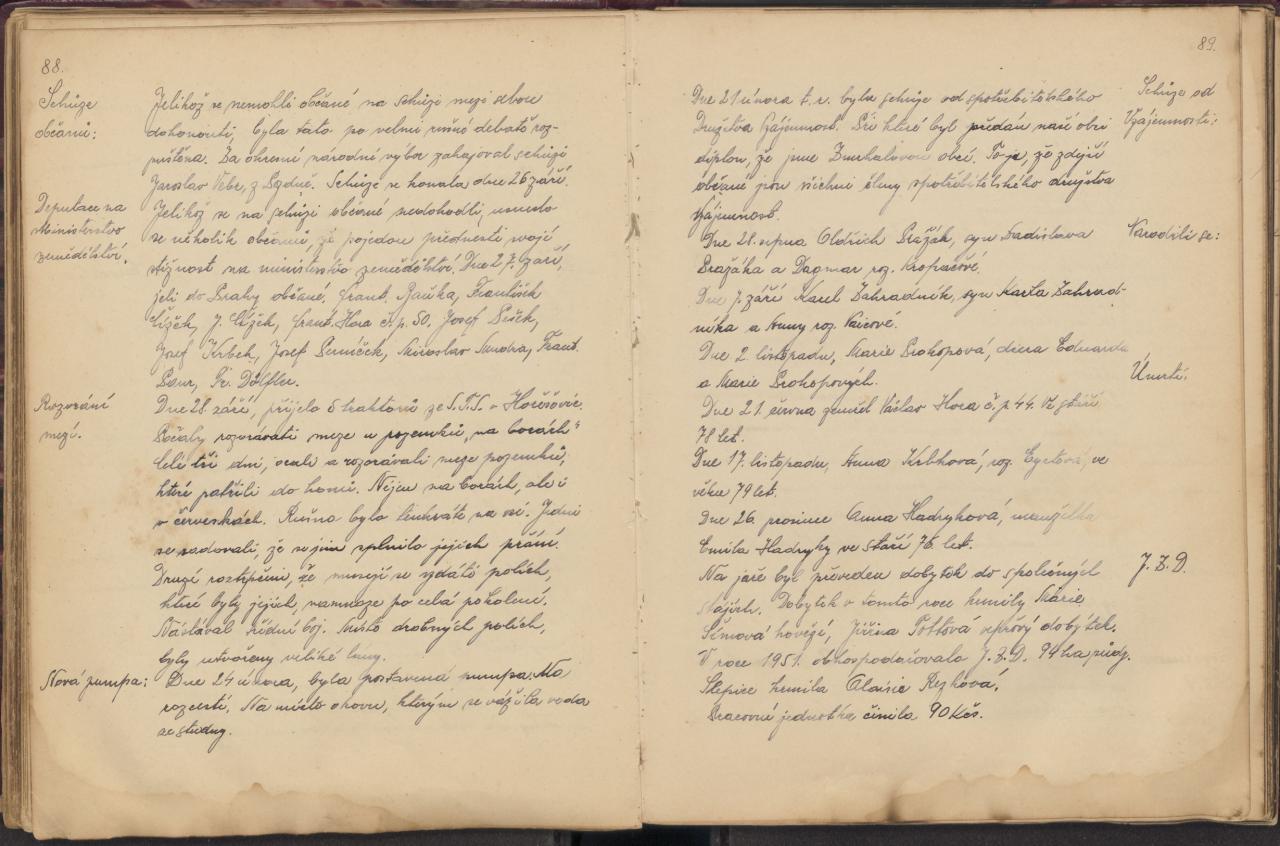 88.
Schůze
občanů:
Jelikož se nemohli občané na schůzi mezi sebou
dohonouti, byla tato po velmi rušné debatě roz-
puštěna. Za okresní národní výbor zahajoval schůzi
Jaroslav Vebr, z Schůze se konala dne 26 září.
Deputace na
ministerstvo
zemědělství.
Jelikož se na schůzi občané nedohodli, usneslo
se několik občanů, že pojedou přednesti svoji
stížnost na ministerstvo zemědělství. Dne 27. září,
jeli do Prahy občané. Frant. Bačka, František
Cížek, J. Cížek, Frant. Hora č. p. 50. Josef Pešek,
Josef Krbek, Josef Perníček, Miroslav Frant.
Fr. Dölfler.
Rozorání
mezí.
Dne 28. září, přijelo 5 traktorů ze S.T.S. v
Počaly rozorávati meze u pozemků „na borách"
Celé tři dni, orali a rozorávali meze pozemků,
které patřili do honů. Nejen na borách, ale i
v červenkách. Rušno bylo tenkráte na vsi. Jedni
se radovali, že se jim splnilo jejich přání.
Druzí roztrpčeni, že musejí se vzdáti polích,
které byly jejich, namnoze po celá pokolení.
Nastával třídní boj. Místo drobných polích,
byly utvořeny veliké lány.
Nová pumpa:
Dne 24 února, byla postavena pumpa. Na
rozcestí. Na místo okovu, kterým se vážila voda
ze studny.
89.
Schůze od
Vzájemnosti:
Dne 21 února t. r. byla schůze od spotřebitelského
Družstva Vzájemnost. Při které byl předán naší obci
diplom, že jsme Zmrhalovou obcí. To je, že zdejší
občané jsou všichni členy spotřebitelského družstva
Vzájemnost.
Narodili se:
Dne 28. srpna Oldřich Pražák, syn Ladislava
Pražáka a Dagmar roz. Kropáčové.
Dne 7. září Karel Zahradník, syn Karla Zahrad-
níka a Anny roz.
Dne 2. listopadu, Marie Prokopová, dcera Eduarda
a Marie Prokopových.
Úmrtí.
Dne 21. června zemřel Václav Hora č. p 44. Ve stáří
78 let.
Dne 17. listopadu, Anna Krbková, roz. ve
věku 79 let.
Dne 26. prosince Anna Hadrykova, manželka
Emila Hadryky ve stáří 76. let.
J. Z. D.
Na jaře byl převeden dobytek do společných
stájích. Dobytek v tomto roce krmily Marie
Šímová hovězí, Jiřina vepřový dobytek.
V roce 1951. obhospodařovalo J. Z. D. 94 ha půdy.
Slepice krmila Aloisie Rezková.
Pracovní jednotka činila 90 Kčs.